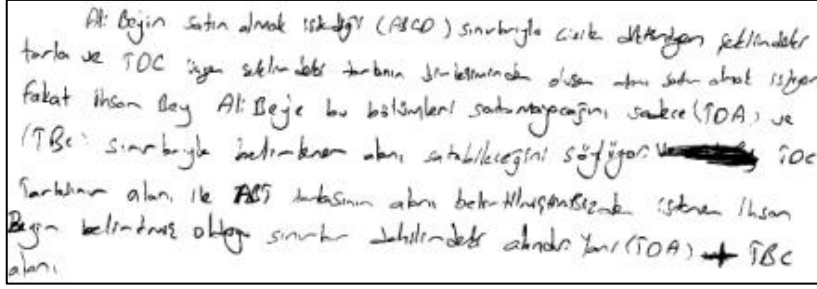 Ali Beyin satın almak istediği (ABCD) sınırlarıyla çizik dikdörtgen şeklindeki
tarla ve TDC üçgen şeklindeki tarlanın birleşiminden oluşan alanı satın almak istiyor
fakat ihsan Bey Ali Beye bu bölümleri satamayacağını, sadece (TDA) ve
(TBC) sınırlarıyla belirlenen alanı satabileceğini söylüyor. TDC
Tarlasının alanı ile ABT tarlasının alanı belirtilmiş Bizden istenen ihsan
Beyin belirlemiş olduğu sınırlar dahilindeki alandır. Yani (TDA) + TBC
alanı